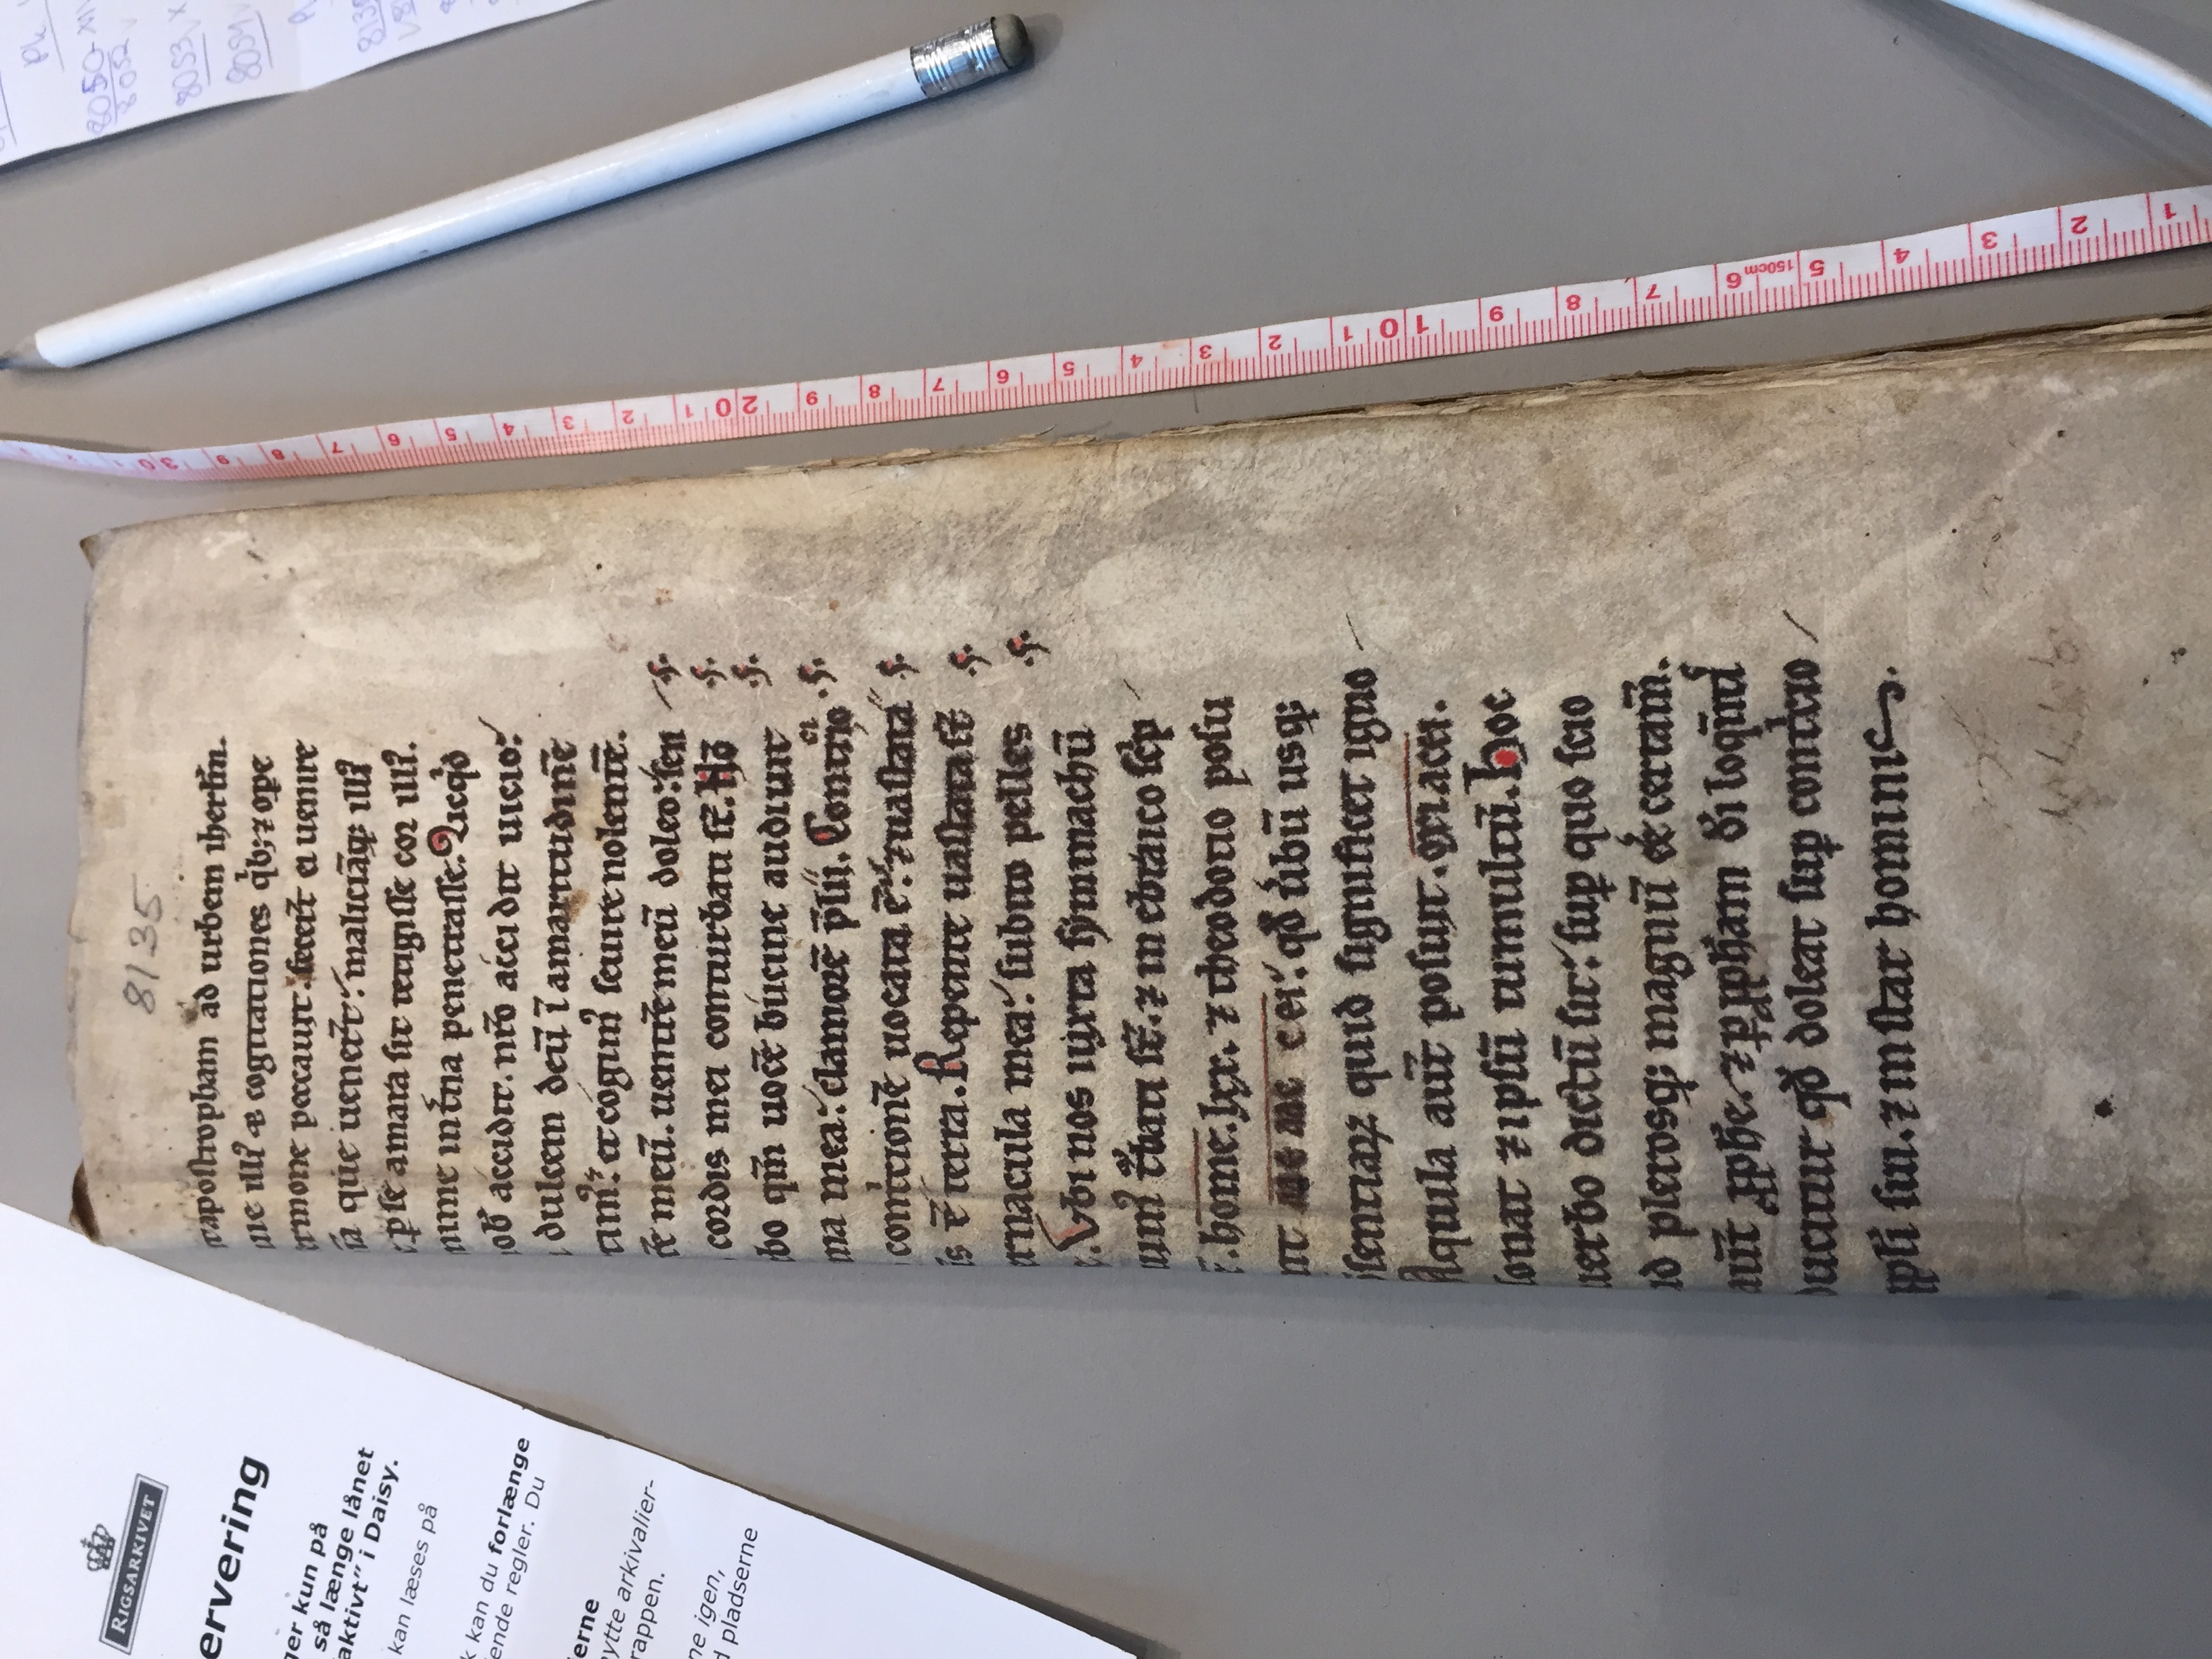 RIGSARKIVET
ervering
ger kun på
så længe lånet
aktivt" i Daisy.
kan læses på
k kan du forlænge
ende regler. Du
erne
ytte arkivalier-
rappen.
ne igen,
d pladserne
8135
apostropham ad urbem iherlm̄.
illꝰ & cogitationes qͥb; ⁊ oꝑe
ermone peccauit. fecer̄t ei uenire
que uener̄t: maliciāq; illꝰ
ꝑ se amara sit tetigisse cor illꝰ.
int̄na penetrasse. Qicqͥd
accidit. nr̄o accidit uicio:
dulcem deū ī amaritudinē
timꝰ: et cogimꝰ seuire nolentē.
meū. uentrē meū doleo: sen
cordis mei conturbati st̄. Nō
bo qm̄ uocē bucine audiuit
ma mea: clamorē p̄lii. Contricio
contͥcionē uocata ē: ⁊ uastata
is ē terra. Repente uastata st̄
ernacula mea: subito pelles
Vbi nos iuxta symmachū
tͬbati st̄. ⁊ in ebraico scͥp
home. lxx. ⁊ theodotio posu
nt me me cei: qđ ủbū usq;
sentiaꝝ quid significet igno
Aquila aut̄ posuit.
sonat ⁊ ipsū tumultū. Hoc
uerbo dictū sit: suꝑ quo scio
ad plerosq; magnū eē certam̄.
aut̄ ꝓphe. ⁊ ꝑ ꝓpham di
ducitur qđ doleat suꝑ contͥcio
ppli sui. ⁊ instar hominis.
30
9
8
7
6
5
4
3
2
1
20
9
8
7
6
5
4
3
2
1
10
9
8
7
6
150cm
5
4
3
2
1
Pk
8050-
8052
8053 X
8054